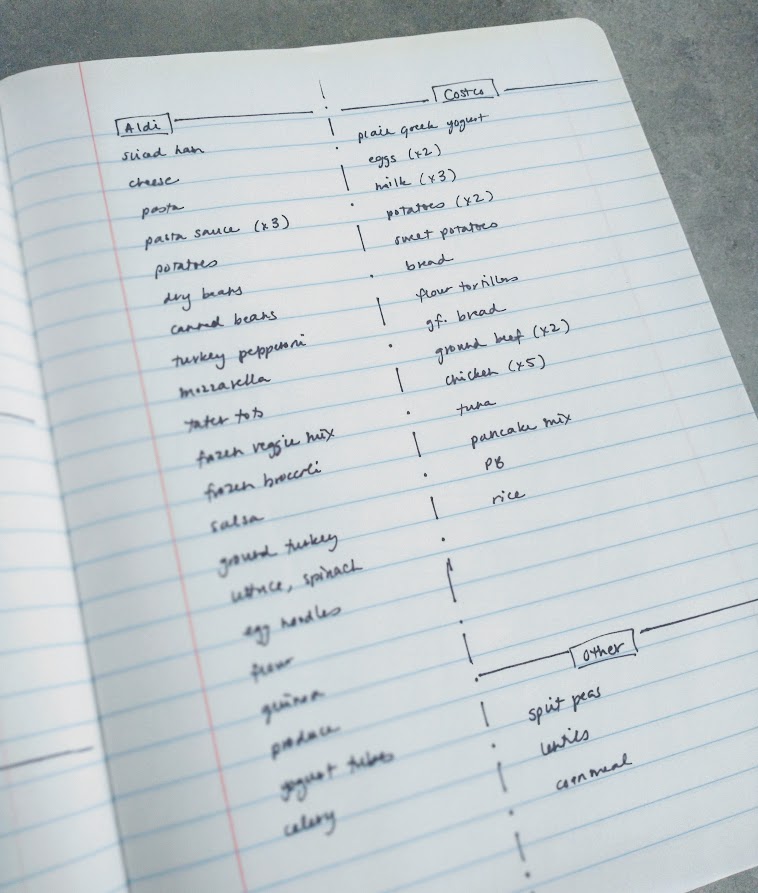 Aldi
sliced ham
cheese
pasta
pasta sauce (x3)
potatoes
dry beans
canned beans
turkey pepperoni
mozzarella
tater tots
frozen veggie mix
frozen broccoli
salsa
ground turkey
lettuce, spinach
egg noodles
flour
quinoa
produce
yogurt tubes
celery
Costco
plain greek yogurt
eggs (x2)
milk (x3)
potatoes (x2)
sweet potatoes
bread
flour tortillas
gf. bread
ground beef (x2)
chicken (x5)
tuna
pancake mix
PB
rice
Other
split peas
lentils
cornmeal